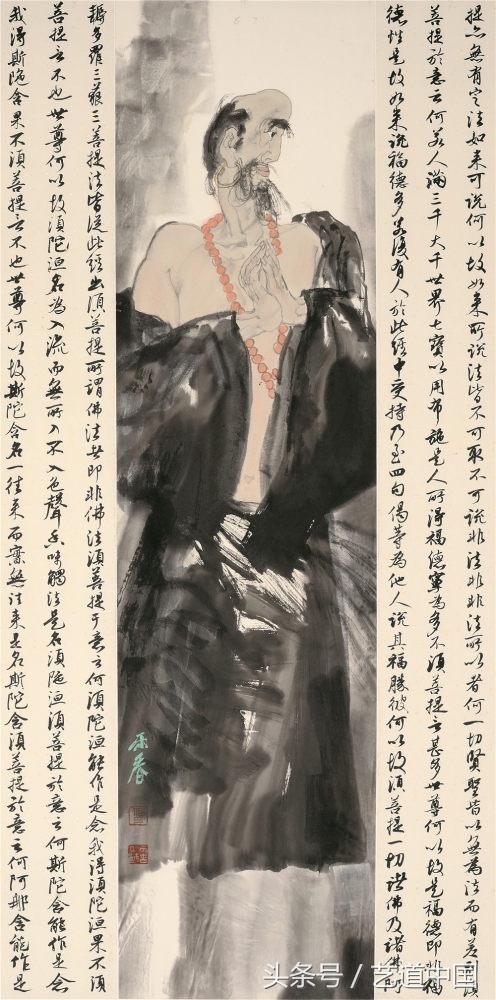 提亦無有定法如来可說何以故如来所說法皆不可取不可說非法非非法所以者何一切賢聖皆以無為法而有差別須
菩提於意云何若人滿三千大千世界七寶以用布施是人所得福德寧為多不須菩提言甚多世尊何以故是福德即非福
德性是故如来說福德多若復有人於此經中受持乃至四句偈等為他人說其福勝彼何以故須菩提一切諸佛及諸佛阿
耨多羅三藐三菩提法皆從此經出須菩提所謂佛法者即非佛法須菩提于意云何須陀洹能作是念我得須陀洹果不須
菩提言不也世尊何以故須陀洹名為入流而無所入不入色聲香味觸法是名須陀洹須菩提於意云何斯陀含能作是念
我得斯陀含果不須菩提言不也世尊何以故斯陀含名一往来而實無往来是名斯陀含須菩提於意云何阿那含能作是
头条号 / 艺道中国